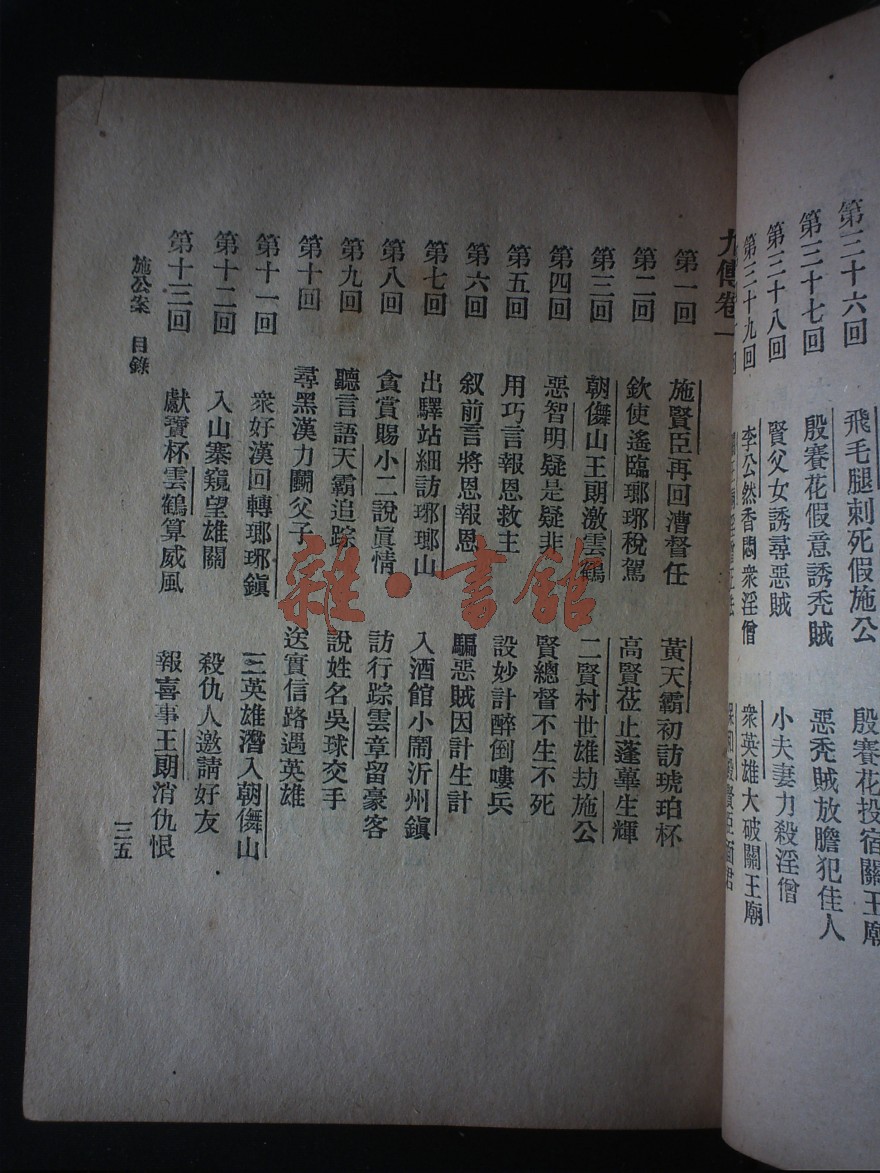 第三十六回 飛毛腿刺死假施公 殷賽花投宿關王廟
第三十七回 殷賽花假意誘禿賊 惡禿賊放膽犯佳人
第三十八回 賢父女誘尋惡賊 小夫妻力殺淫僧
第三十九回 李公然香悶衆淫僧 衆英雄大破關王廟
九傳卷一
第一回 施賢臣再回漕督任 黃天霸初訪琥珀杯
第二回 欽使遙臨瑯琊稅駕 高賢莅止蓬蓽生輝
第三回 朝儛山王朗激雲鶴 二賢村世雄劫施公
第四回 惡智明疑是疑非 賢總督不生不死
第五回 用巧言報恩救主 設妙計醉倒嘍兵
第六回 叙前言將恩報恩 騙惡賊因計生計
第七回 出驛站細訪琊瑯山 入酒館小鬧沂州鎭
第八回 貪賞賜小二說眞情 訪行踪雲章留豪客
第九回 聽言語天霸追踪 說姓名吳球交手
第十回 尋黑漢力鬭父子 送實信路遇英雄
第十一回 衆好漢回轉瑯琊鎭 三英雄潛入朝儛山
第十二回 入山寨窺望雄關 殺仇人邀請好友
第十三回 獻寶杯雲鶴算威風 報喜事王朗消仇恨
施公案 目錄 三五
雜·書館